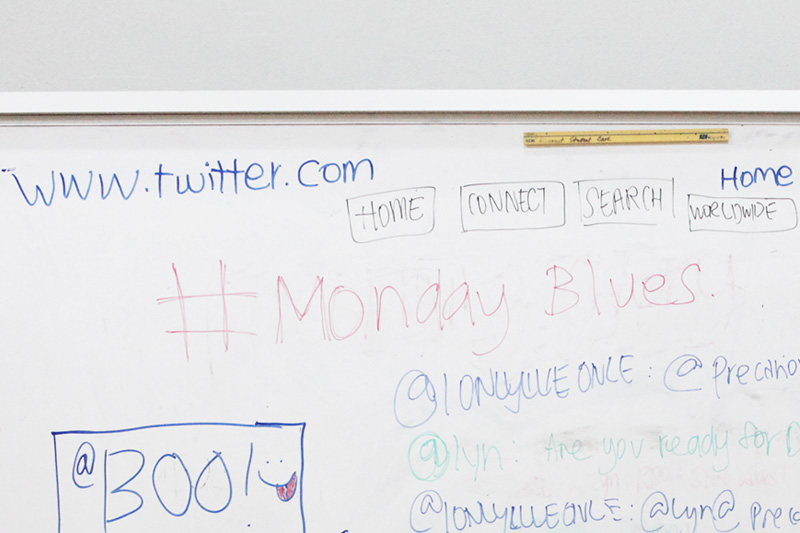 www.twitter.com
Home
HOME CONNECT SEARCH WORLDWIDE
# Monday Blues.
@IONLYLIVEONCE: @Precious
@lyn. Are you ready for D
@BOO!
@IONLYLIVEONCE: @Lyn@ Preci